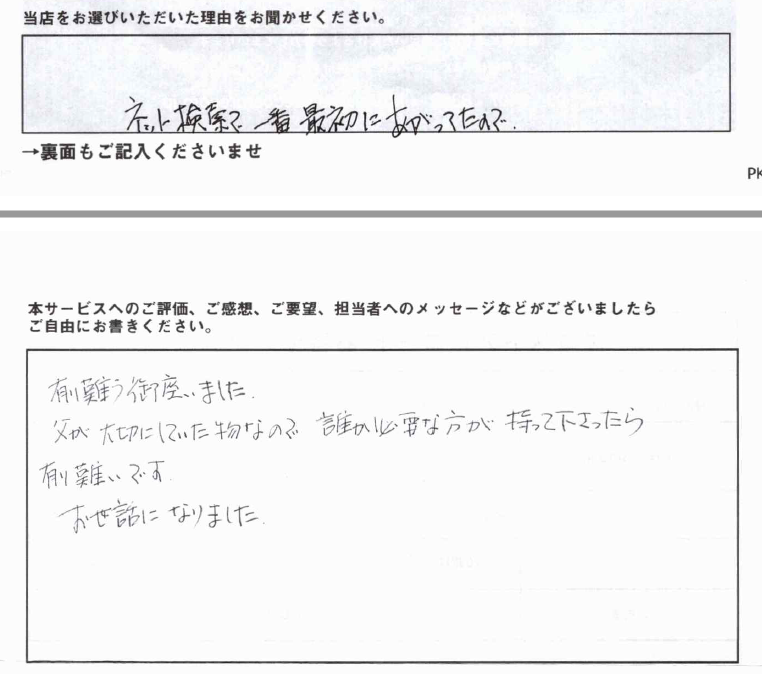 当店をお選びいただいた理由をお聞かせください。
ネット検索で一番最初にあがってたので.
→裏面もご記入くださいませ
PK
本サービスへのご評価、ご感想、ご要望、担当者へのメッセージなどがございましたら
ご自由にお書きください。
有難う御座いました.
父が大切にしていた物なので誰か必要な方が持って下さったら
有難いです.
お世話になりました.